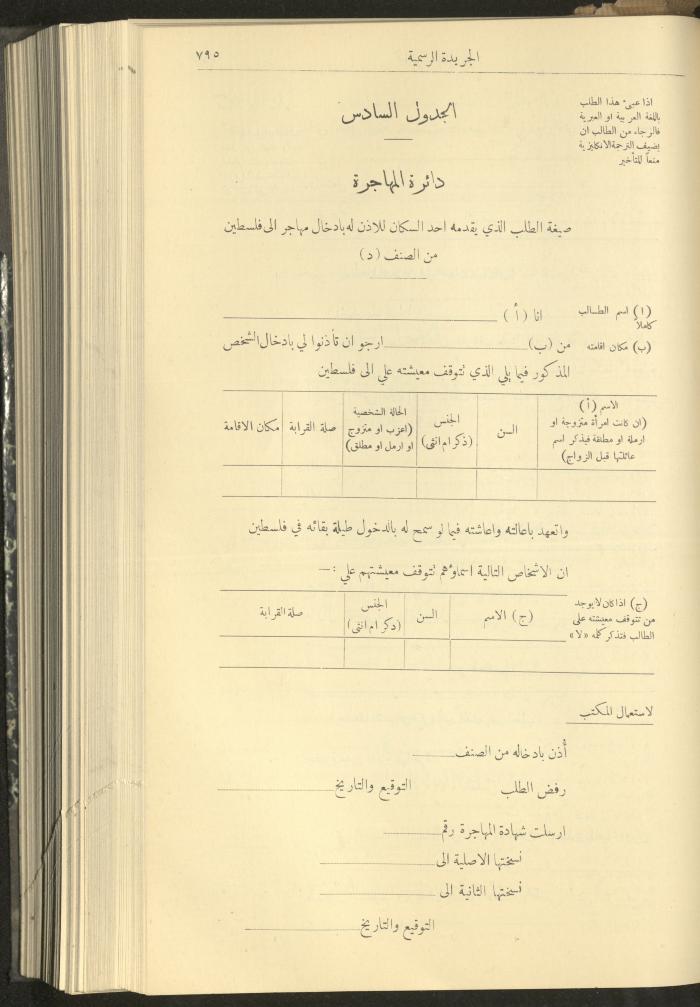 الجريدة الرسمية
٧٩٥
اذا عبىء هذا الطلب
باللغة العربية او العبرية
فالرجاء من الطالب ان
يضيف الترجمة الانكليزية
منعاً للتأخير
الجدول السادس
دائرة المهاجرة
صيغة الطلب الذي يقدمه احد السكان للاذن له بادخال مهاجر الى فلسطين
من الصنف (د)
(ا) اسم الطالب
كاملاً
انا (أ)
(ب) مكان اقامته
من (ب) ارجو ان تأذنوا لي بادخال الشخص
المذكور فيما يلي الذي تتوقف معيشته علي الى فلسطين
الاسم (أ)
(ان كانت امرأة متزوجة او
ارملة او مطلقة فيذكر اسم
عائلتها قبل الزواج)
السن
الجنس
(ذكر ام انثى)
الحالة الشخصية
(اعزب او متزوج
او ارمل او مطلق)
صلة القرابة
مكان الاقامة
واتعهد باعالته واعاشته فيما لو سمح له بالدخول طيلة بقائه في فلسطين
ان الاشخاص التالية اسماؤهم تتوقف معيشتهم علي :—
(ج) اذا كان لا يوجد
من تتوقف معيشته على
الطالب فتذكر كلمة «لا»
(ج) الاسم
السن
الجنس
(ذكر ام انثى)
صلة القرابة
لاستعمال المكتب
أُذن بادخاله من الصنف
رفض الطلب
التوقيع والتاريخ
ارسلت شهادة المهاجرة رقم
نسختها الاصلية الى
نسختها الثانية الى
التوقيع والتاريخ